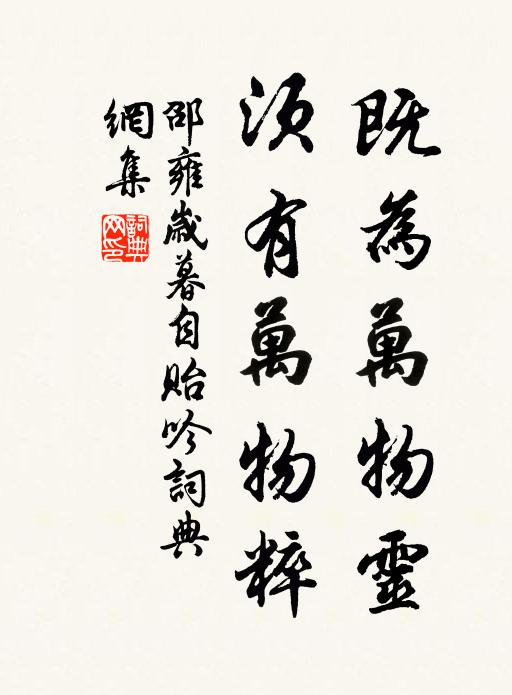 既為萬物靈
須有萬物粹
邵雍歲暮自貽吟詞典
網集
詞典
网印